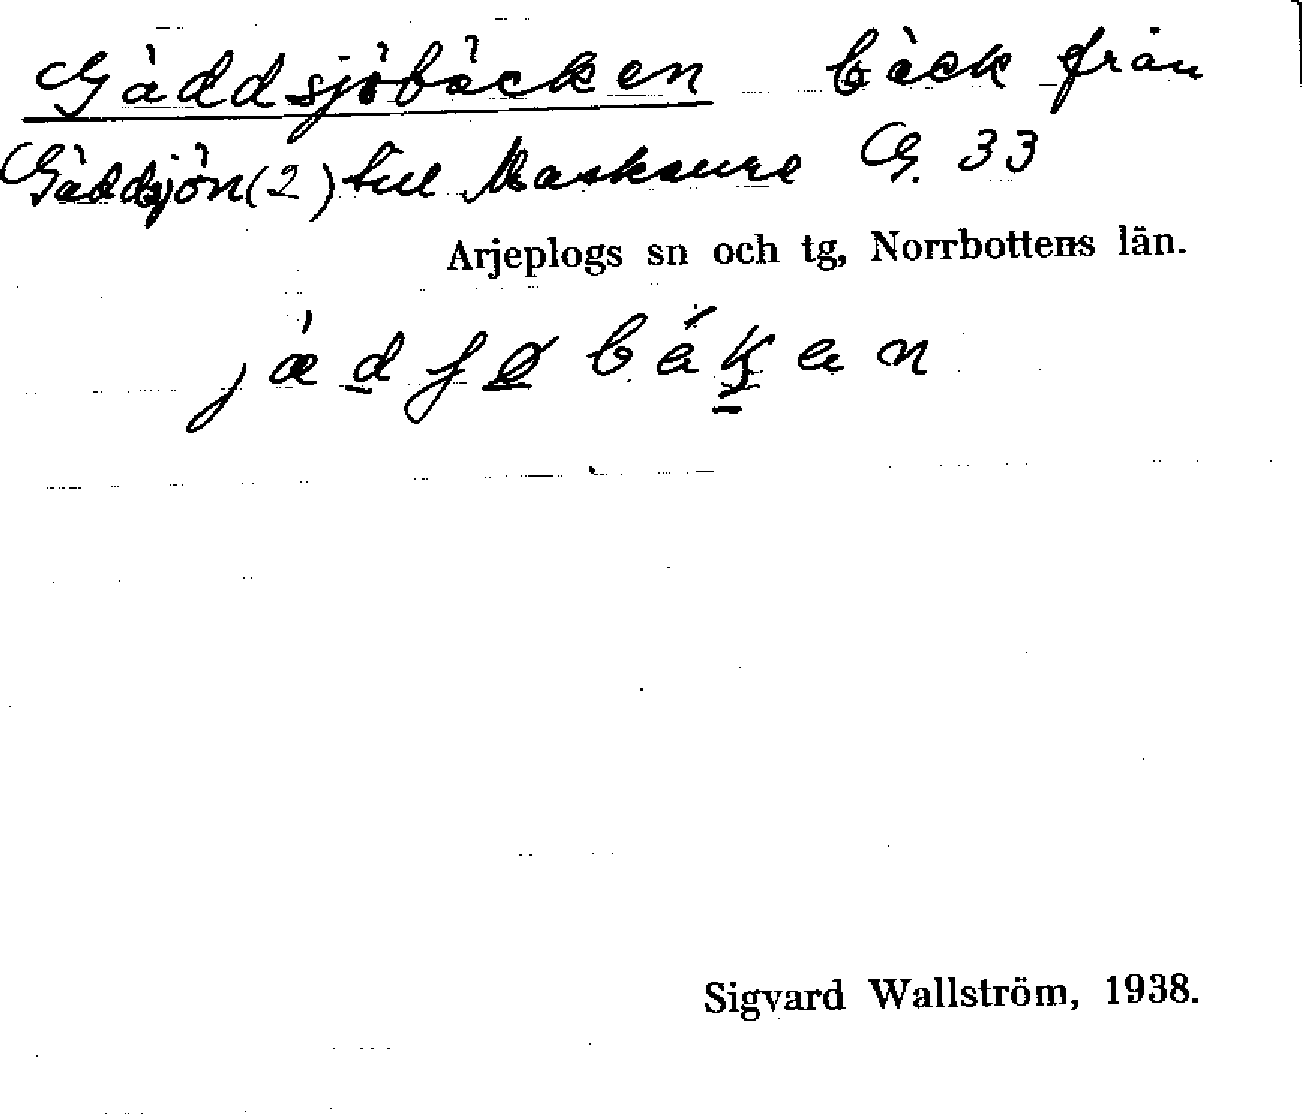 Gäddsjöbäcken bäck från
Gäddsjön (2) till Maskaure G. 33
Arjeplogs sn och tg, Norrbottens län.
Sigvard Wallström, 1938.